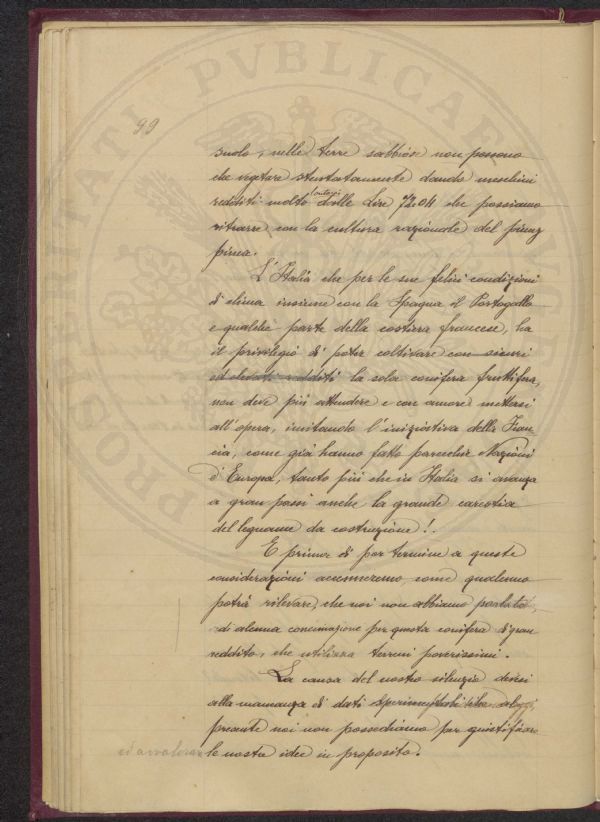 99
suolo, nelle terre sabbiose non possono
che vegetare stentatamente dando meschini
redditi molto lontani dalle Lire 72.04 che possiamo
ritrarre con la cultura razionale del pinus
pinea.
L'Italia che per le sue felici condizioni
di clima insieme con la Spagna il Portogallo
e qualche parte della costiera francese, ha
il privilegio di poter coltivare con sicuri
ed elevati redditi la sola conifera fruttifera,
non deve più attendere e con amore mettersi
all'opera, imitando l'iniziativa della Fran
cia, come già hanno fatto parecchie Nazioni
d'Europa, tanto più che in Italia si avanza
a gran passi anche la grande carestia
del legname da costruzione!.
E prima di por termine a queste
considerazioni accenneremo come qualcuno
potrà rilevare, che noi non abbiamo parlato
di alcuna concimazione per questa conifera di gran
reddito, che utilizza terreni poverissimi.
La causa del nostro silenzio devesi
alla mancanza di dati sperimentali che
presente noi non possediamo per giustificare
ed avvalorare le nostre idee in proposito.
PROBITATI PVBLICAE